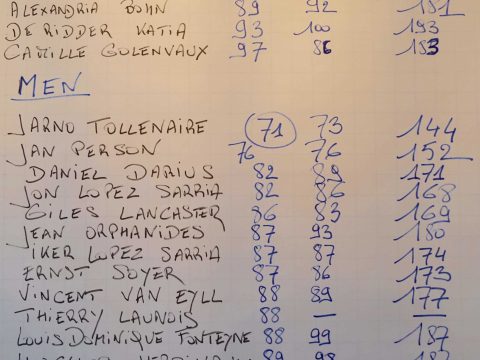 ALEXANDRIA BOHN 89 92 181
DE RIDDER KATIA 93 100 193
CAMILLE GOLENVAUX 97 86 183
MEN
JARNO TOLLENAIRE 71 73 144
JAN PERSON 76 76 152
DANIEL DARIUS 82 89 171
JON LOPEZ SARRIA 82 86 168
GILES LANCASTER 86 83 169
JEAN ORPHANIDES 87 93 180
IKER LOPEZ SARRIA 87 87 174
ERNST SOYER 87 86 173
VINCENT VAN EYLL 88 89 177
THIERRY LAUNOIS 88 — —
LOUIS DOMINIQUE FONTEYNE 88 99 187
89 98